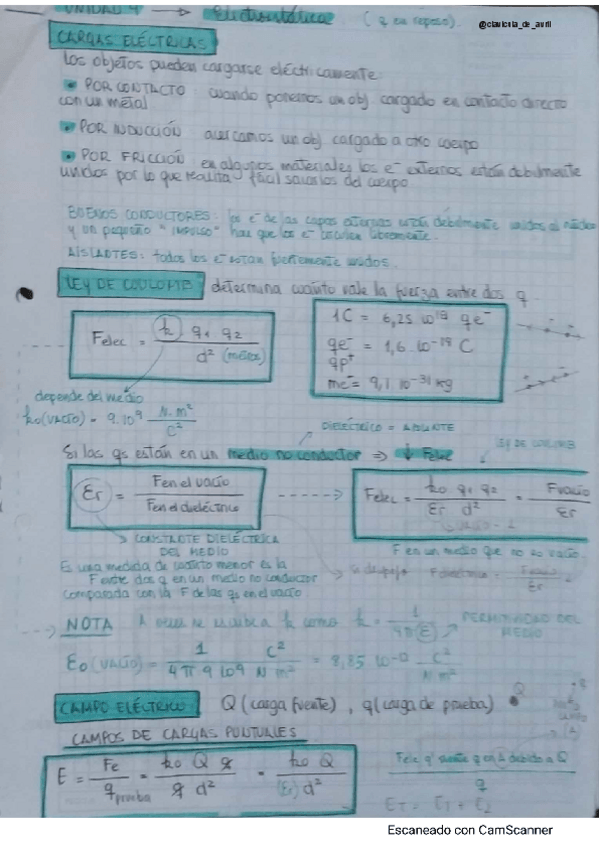 UNIDAD 4 → Electrostática (q en reposo). @clavicula_de_avril
CARGAS ELÉCTRICAS
Los objetos pueden cargarse eléctricamente
• POR CONTACTO cuando ponemos un obj cargado en contacto directo
con un metal
• POR INDUCCIÓN acercamos un obj cargado a otro cuerpo
• POR FRICCIÓN en algunos materiales los e⁻ externos están debilmente
unidos por lo que resulta fácil sacarlos del cuerpo
BUENOS CONDUCTORES: los e⁻ de las capas externas están débilmente unidos al núcleo
y un pequeño "IMPULSO" hace que los e⁻ circulen libremente.
AISLANTES: todos los e⁻ están fuertemente unidos.
LEY DE COULOMB determina cuánto vale la fuerza entre dos q
Felec = k q₁ q₂ / d² (metros)
1C = 6,25 10¹⁸ qe⁻
qe⁻ = 1,6 10⁻¹⁹ C
qp⁺
me⁻ = 9,1 10⁻³¹ kg
depende del medio
ko (VACÍO) = 9.10⁹ N.m² / C²
DIELÉCTRICO = AISLANTE
Si las qs están en un medio no conductor ⇒ ↓ Felec
LEY DE COULOMB
Er = F en el vacío / F en el dieléctrico
Felec = ko q₁ q₂ / Er d² = Fvacío / Er
CONSTANTE DIELÉCTRICA
DEL MEDIO
F en un medio que no es vacío.
Es una medida de cuánto menor es la
F entre dos q en un medio no conductor
comparada con la F de las qs en el vacío
se despeja F dieléctrico = Fvacío / Er
NOTA A veces se escribe k como k = 1 / 4π(E) PERMITIVIDAD DEL
MEDIO
E₀ (VACÍO) = 1 / 4π 9 10⁹ C² / N m² = 8,85 10⁻¹² C² / N m²
CAMPO ELÉCTRICO Q (carga fuente), q (carga de prueba) Q
CAMPOS DE CARGAS PUNTUALES
E = Fe / q prueba = ko Q q / q d² = ko Q / (Er) d²
debido a Q / q
ET = E₁ + E₂
Escaneado con CamScanner